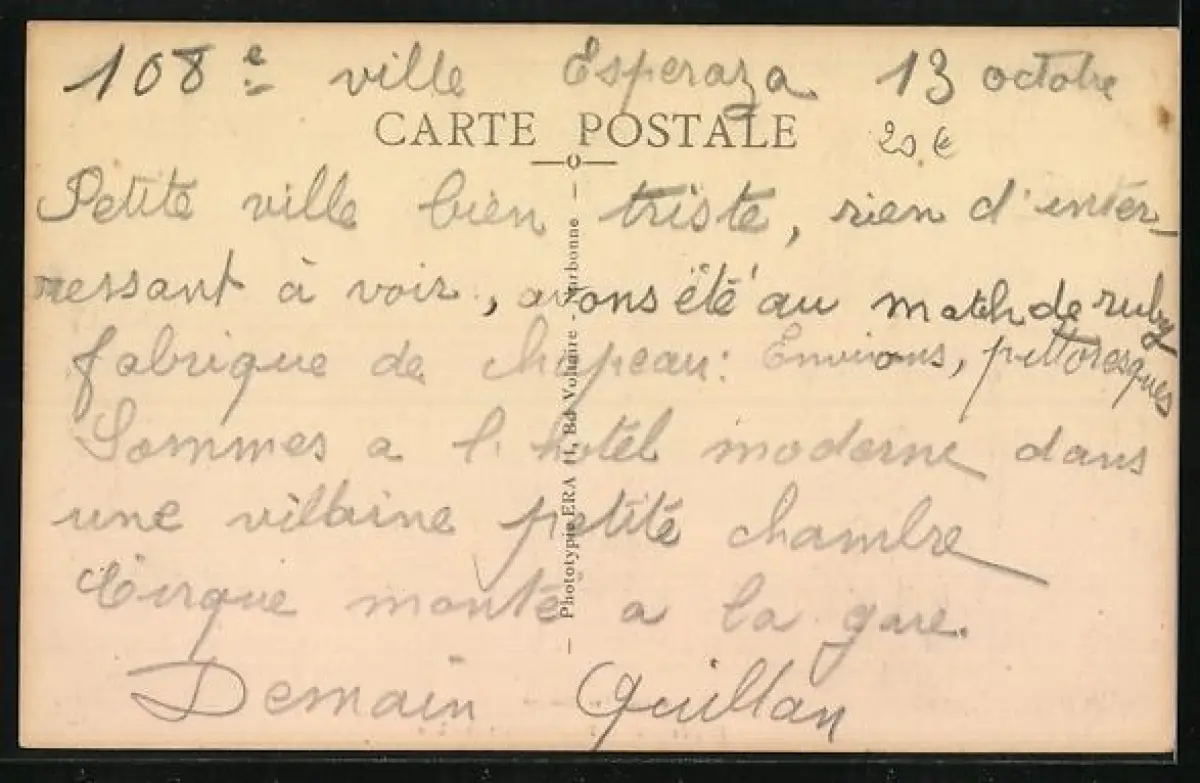 108e ville Esperaza 13 octobre
CARTE POSTALE
20 €
Petite ville bien triste, rien d'inter-
ressant à voir, avons été au match de ruby
fabrique de chapeau: Environs, pittoresques
Sommes a l'hotel moderne dans
une villaine petite chambre
Cirque monté a la gare.
Demain Quillan
- Phototypie ERA 11, Bd Voltaire - Narbonne -